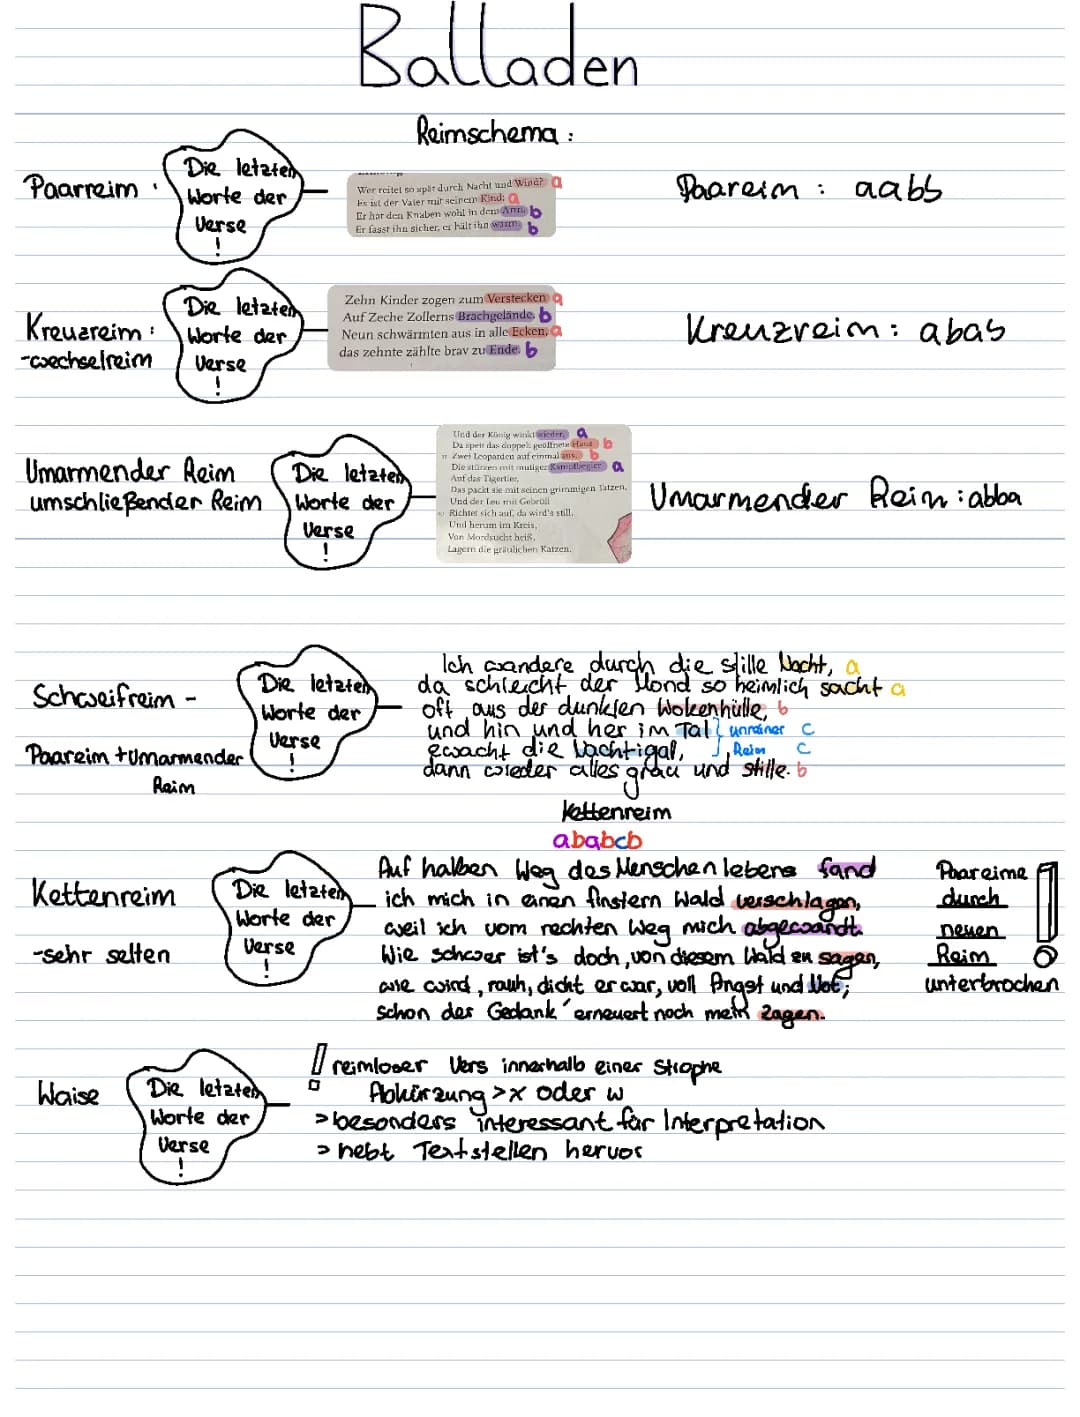 Balladen
Reimschema :
Paarreim :
Die letzten
Worte der
Verse
!
Wer reitet so spät durch Nacht und Wind? a
Es ist der Vater mit seinem Kind; a
Er hat den Knaben wohl in dem Arm, b
Er fasst ihn sicher, er hält ihn warm. b
Paareim : aabb
Kreuzreim :
-wechselreim
Die letzten
Worte der
Verse
!
Zehn Kinder zogen zum Verstecken a
Auf Zeche Zollerns Brachgelände. b
Neun schwärmten aus in alle Ecken, a
das zehnte zählte brav zu Ende. b
Kreuzreim : abab
Umarmender Reim
umschließender Reim
Die letzten
Worte der
Verse
!
Und der König winkt wieder, a
Da speit das doppelt geöffnete Haus b
Zwei Leoparden auf einmal aus, b
Die stürzen mit mutiger Kampfbegier a
Auf das Tigertier,
Das packt sie mit seinen grimmigen Tatzen,
Und der Leu mit Gebrüll
Richtet sich auf, da wird's still,
Und herum im Kreis,
Von Mordsucht heiß,
Lagern die gräulichen Katzen.
Umarmender Reim : abba
Schweifreim -
Paareim + Umarmender
Reim
Die letzten
Worte der
Verse
!
Ich wandere durch die stille Nacht, a
da schleicht der Mond so heimlich sacht a
oft aus der dunklen Wolkenhülle, b
und hin und her im Tal } unreiner c
ewacht die Nachtigal, } , Reim c
dann wieder alles grau und stille. b
Kettenreim
ababcb
Kettenreim
-sehr selten
Die letzten
Worte der
Verse
!
Auf halben Weg des Menschen lebens fand
ich mich in einen finstern Wald verschlagen,
weil ich vom rechten Weg mich abgewandt.
Wie schwer ist's doch, von diesem Wald zu sagen,
wie wird, rauh, dicht er war, voll Angst und Not;
schon der Gedank' erneuert noch mein zagen.
Paareime
durch
neuen
Reim
unterbrochen
!
Waise
Die letzten
Worte der
Verse
!
! reimloser Vers innerhalb einer Strophe
Abkürzung > x oder w
> besonders interessant für Interpretation
> hebt Textstellen hervor